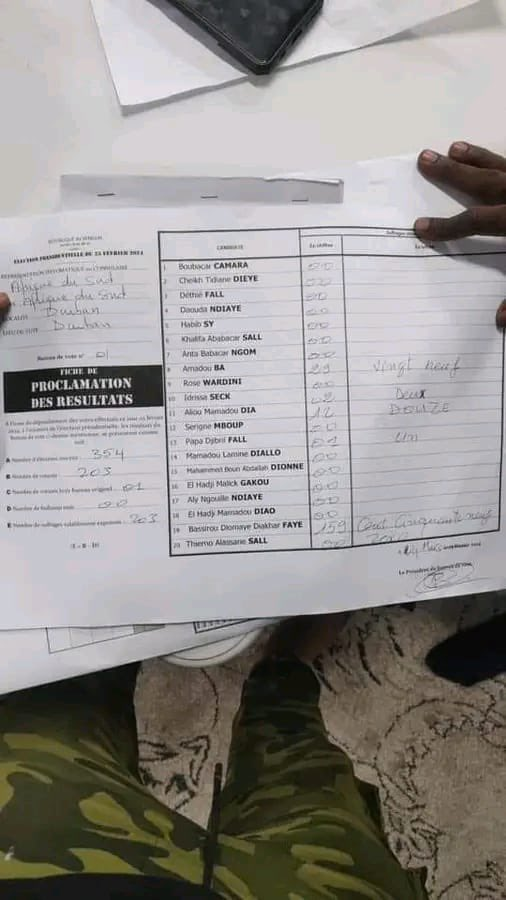 REPUBLIQUE DU SENEGAL
ELECTION PRESIDENTIELLE DU 25 FÉVRIER 2024
REPRÉSENTATION DIPLOMATIQUE OU CONSULAIRE
Afrique du Sud
Afrique du Sud
LOCALITÉ Durban
LIEU DE VOTE Durban
Bureau de vote n° 01
FICHE DE
PROCLAMATION
DES RESULTATS
A Nombre d'électeurs inscrits : 354
B Nombre de votants : 203
C Nombre de votants hors bureau originel : 01
D Nombre de bulletins nuls : 00
E Nombre de suffrages valablement exprimés : 203
(E = B - D)
CANDIDATS En chiffres
1 Boubacar CAMARA 00
2 Cheikh Tidiane DIEYE 00
3 Déthié FALL 00
4 Daouda NDIAYE 00
5 Habib SY 00
6 Khalifa Ababacar SALL 00
7 Anta Babacar NGOM 00
8 Amadou BA 29 Vingt neuf
9 Rose WARDINI 00
10 Idrissa SECK 02 Deux
11 Aliou Mamadou DIA 12 DOUZE
12 Serigne MBOUP 00
13 Papa Djibril FALL 01 Un
14 Mamadou Lamine DIALLO 00
15 Mahammed Boun Abdallah DIONNE 00
16 El Hadji Malick GAKOU 00
17 Aly Ngouille NDIAYE 00
18 El Hadji Mamadou DIAO 00
19 Bassirou Diomaye Diakhar FAYE 159 Cent Cinquante neuf
20 Thierno Alassane SALL 00
24 Mars 2024
Le Président du bureau de vote